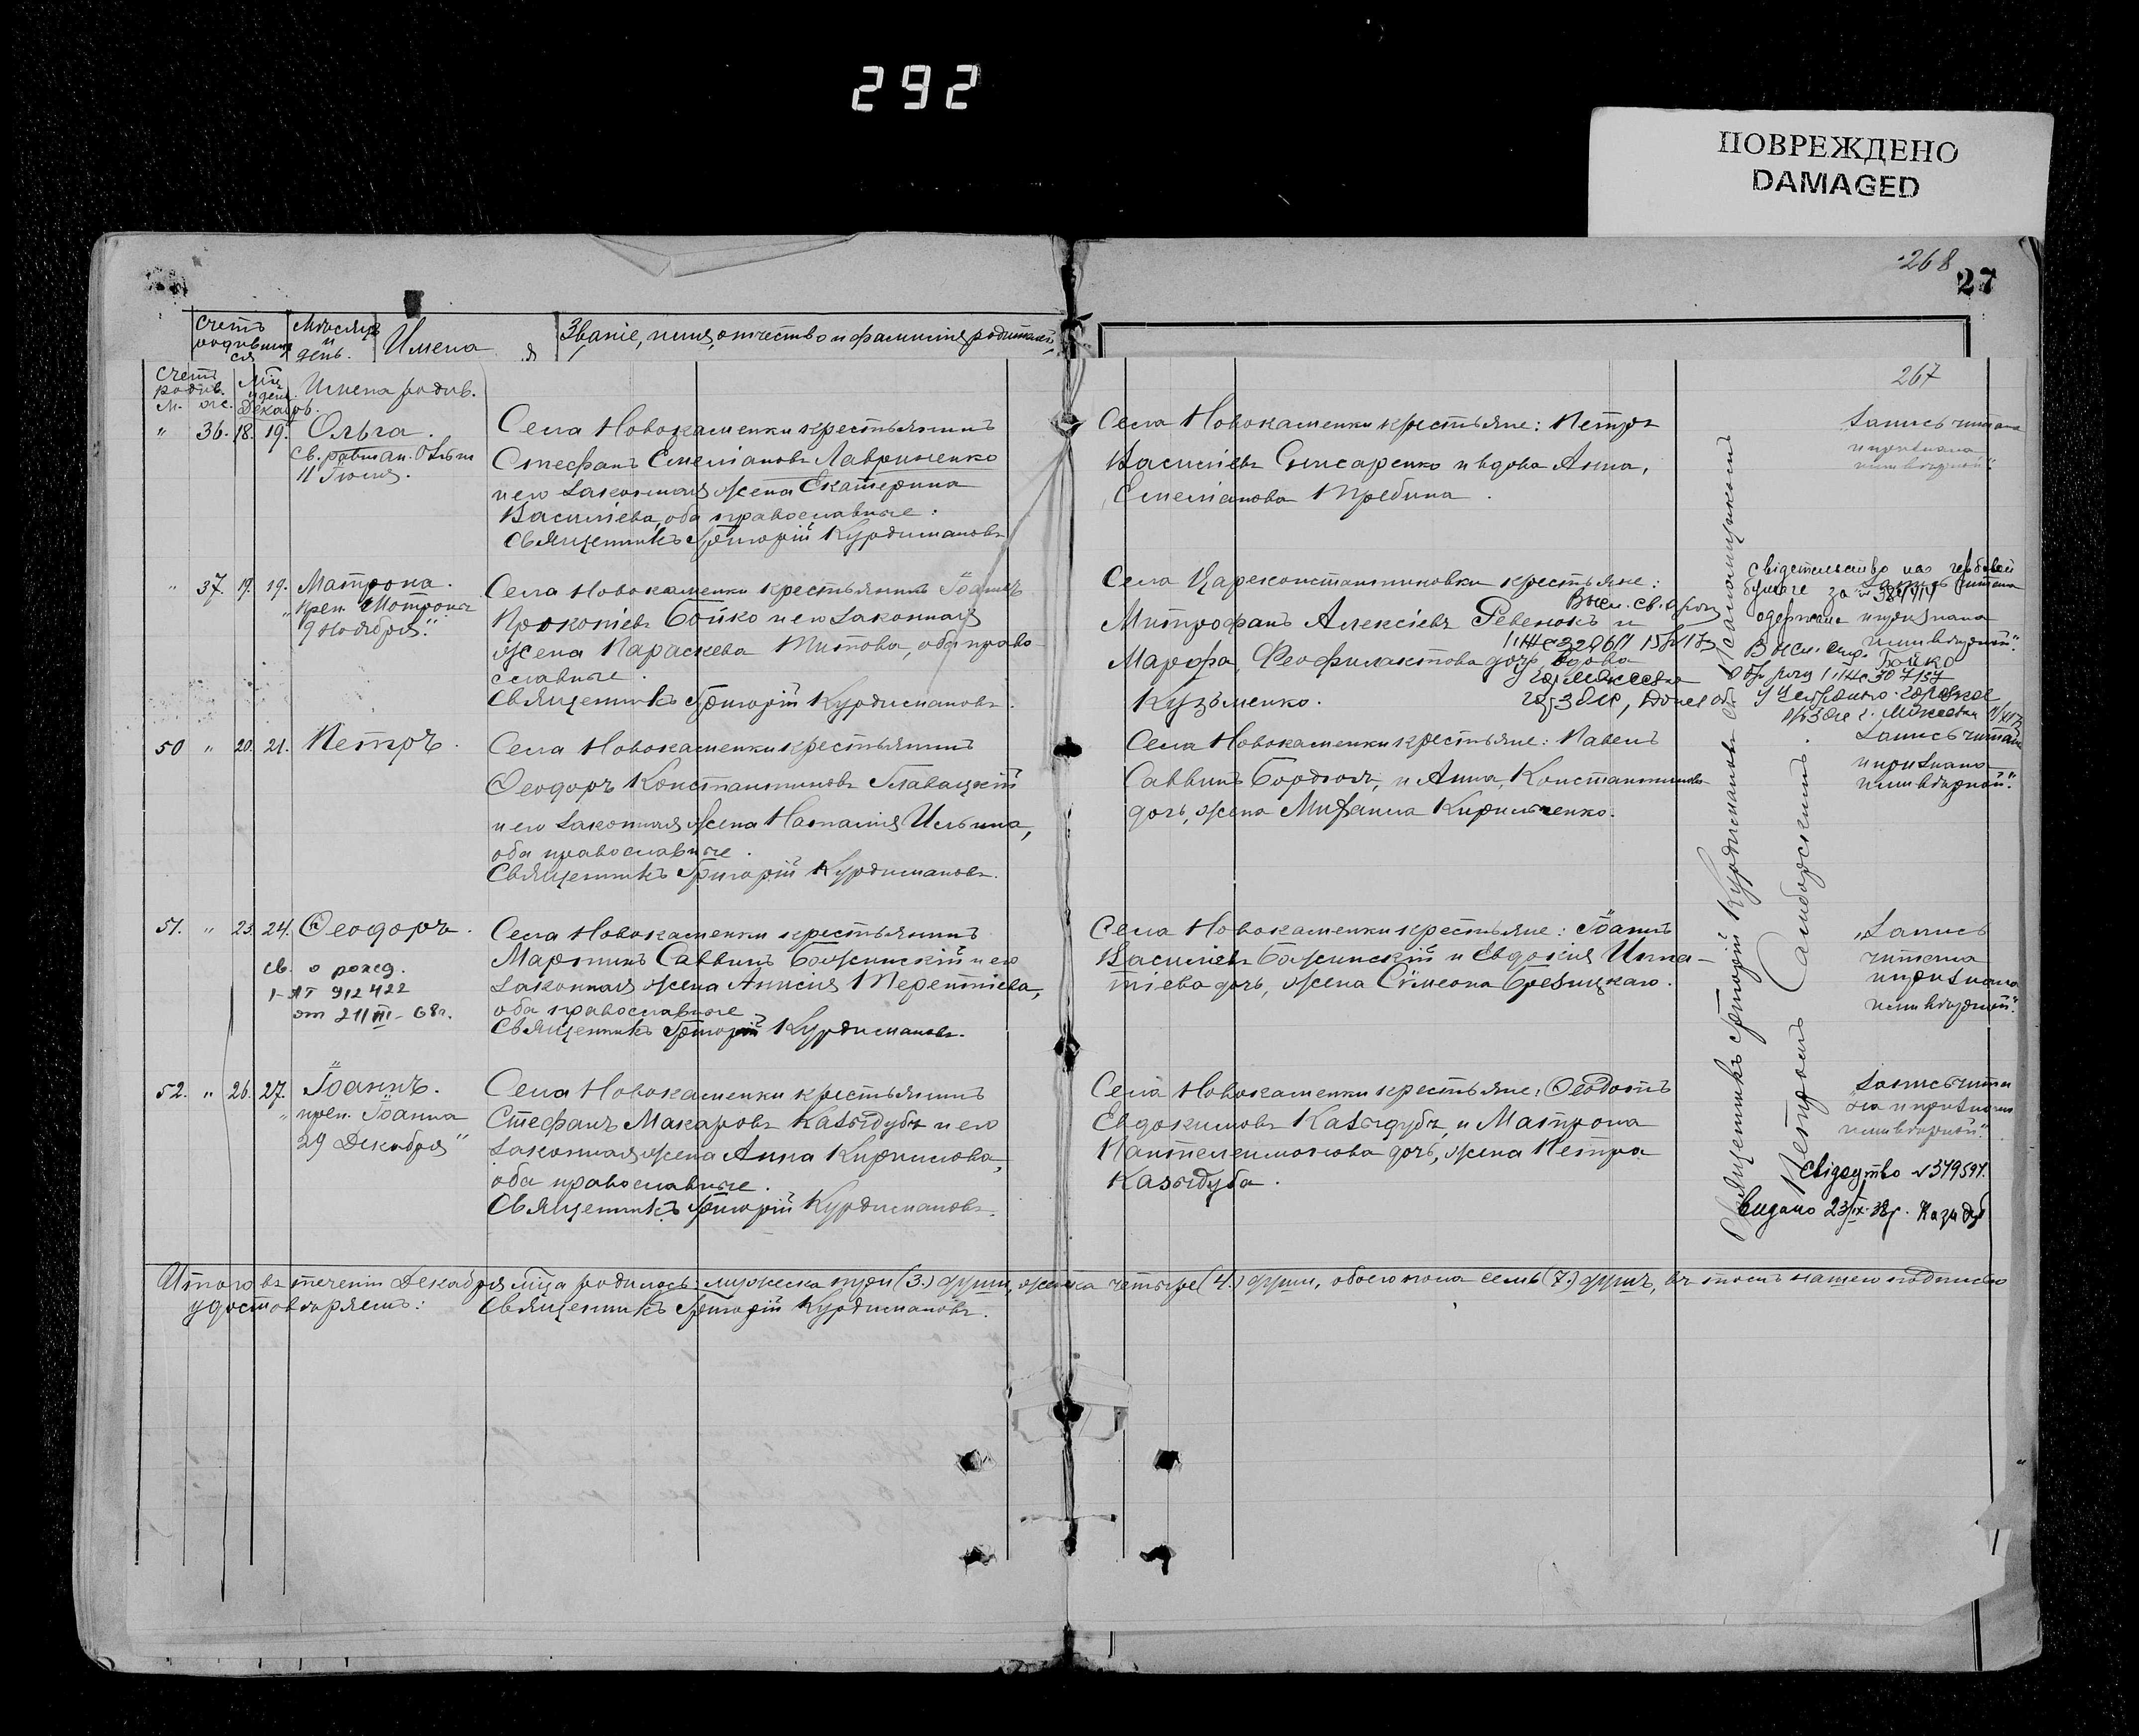 292
ПОВРЕЖДЕНО
DAMAGED
268
27
Счетъ родившихся
Мѣсяцъ и день.
Имена
Званіе, имя, отчество и фамилія родителей
267
Счетъ родив.
м. ж.
Мѣс. и день.
Декабрь.
Имена родив.
" 36. 18. 19. Ольга.
Св. равноап. Ольги
11 Іюля.
Села Новокаменки крестьянинъ
Стефанъ Емеліановъ Лавриненко
и его законная жена Екатерина
Василіева, оба православные.
Священникъ Григорій Курдимановъ
Села Новокаменки крестьяне: Петръ
Василіевъ Слисаренко и вдова Анна,
Емеліанова Требина.
Запись читана
и признана
"
" 37. 19. 19. Матрона.
Преп. Матроны
9 Ноября."
Села Новокаменки крестьянинъ Іоаннъ
Прокопіевъ Бойко и его законная
жена Параскева Титова, оба право-
славные.
Священникъ Григорій Курдимановъ.
Села Цареконстантиновки крестьяне:
Митрофанъ Алексіевъ Ревенокъ и
Марфа, Феофилактова дочь, вдова
Кузьменко.
свідетельство на гербовой
бумаге за № 384914
Запись читана
одержане
и признана
Бойко
50 " 20. 21. Петръ.
Села Новокаменки крестьянинъ
Ѳеодоръ Константиновъ Главацкій
и его законная жена Наталія Ильина,
оба православные.
Священникъ Григорій Курдимановъ.
Села Новокаменки крестьяне: Павелъ
Саввинъ Бородокъ, и Анна, Константинова
дочь, жена Михаила Кирильченко.
Запись читана
и признана
51. " 23. 24. Ѳеодоръ.
св. о рожд.
I-ЯГ 912422
от 21/III-68г.
Села Новокаменки крестьянинъ
Мартинъ Саввинъ Божинскій и его
законная жена Анисія Терентіева,
оба православные
Священникъ Григорій Курдимановъ.
Села Новокаменки крестьяне: Іоаннъ
Василіевъ Божинскій и Евдокія Игна-
тіева дочь, жена Сѵмеона Брезицкаго.
"Запись
читана
и признана
52. " 26. 27. Іоаннъ.
"преп. Іоанна
29 Декабря"
Села Новокаменки крестьянинъ
Стефанъ Макаровъ Казыдубъ и его
законная жена Анна Кирилова,
оба православные.
Священникъ Григорій Курдимановъ.
Села Новокаменки крестьяне: Ѳеодотъ
Евдокимовъ Казыдубъ, и Матрона
Пантелеимонова дочь, жена Петра
Казыдуба.
Запись чита
на и признана
Свідоцтво №379597.
видано 23/IX-38р. Казидуб
Священникъ Григорій Курдимановъ съ псаломщикомъ
Петромъ Самборскимъ.
Итого въ теченіи Декабря мѣсяца родилось: мужеска три (3.) души, женска четыре (4.) души, обоего пола семь (7.) душъ, въ томъ нашею подписью
удостовѣряемъ: Священникъ Григорій Курдимановъ.